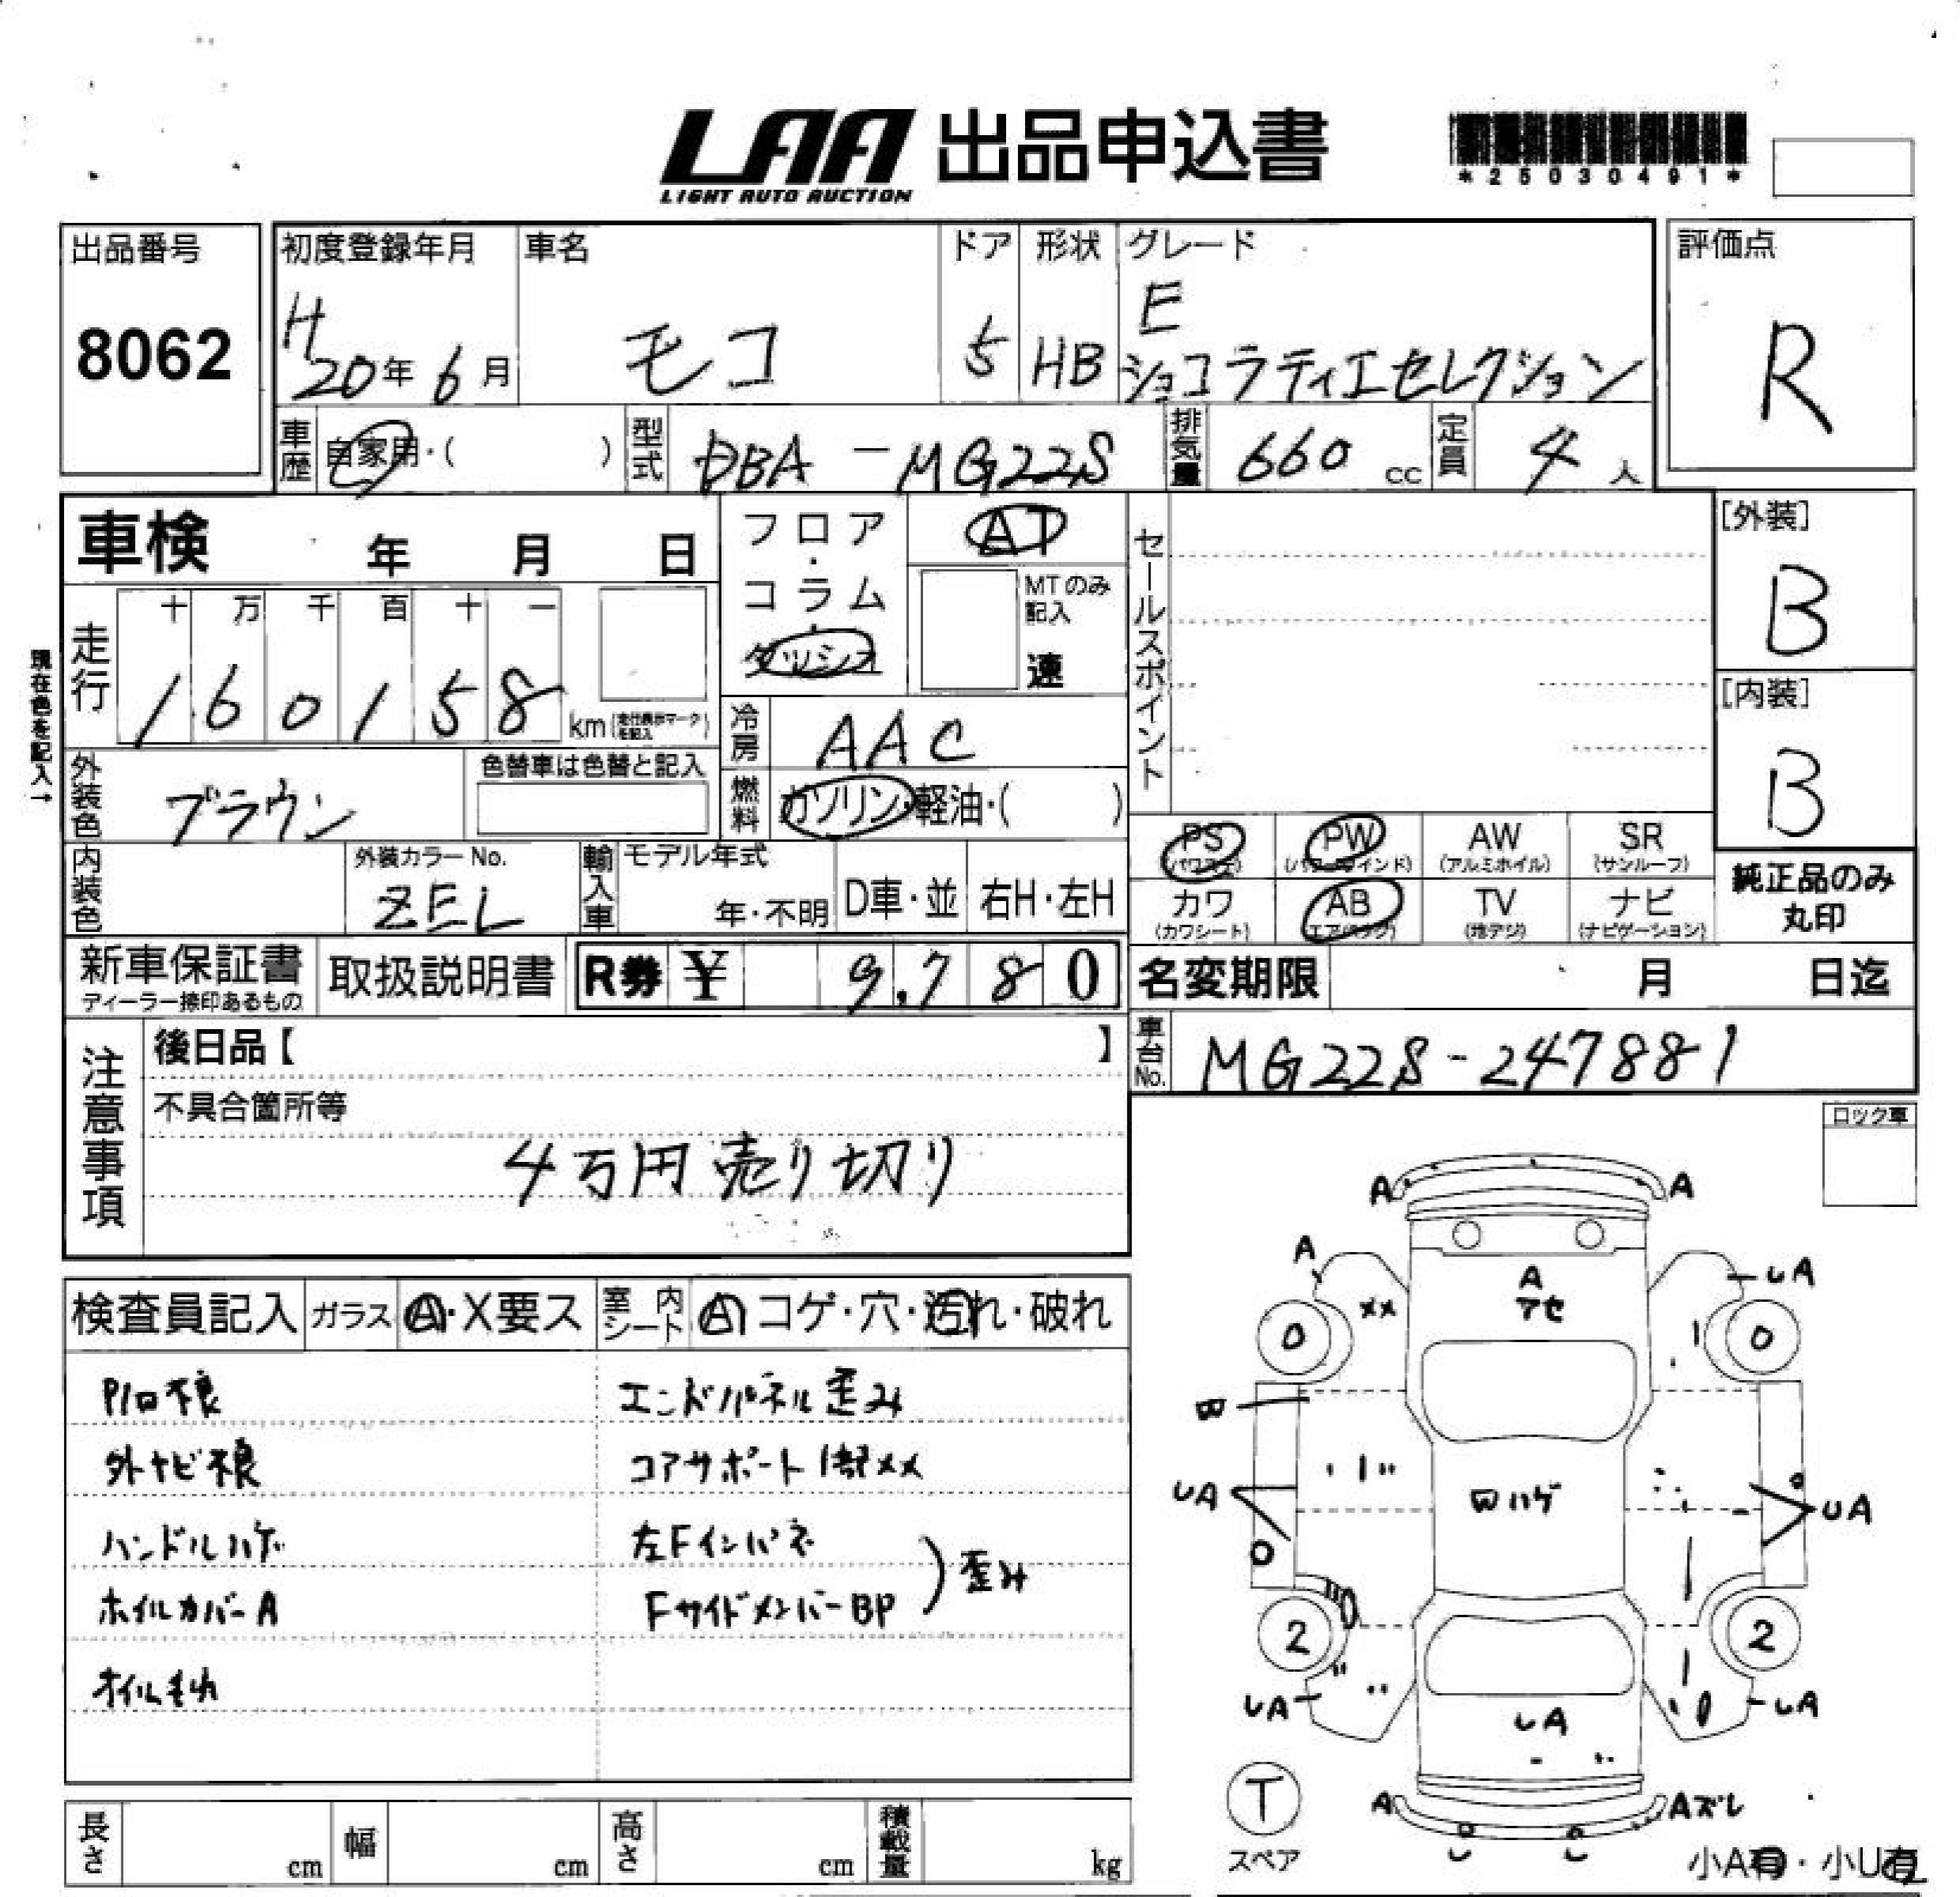 LAA 出品申込書
LIGHT AUTO AUCTION
*25030491*
出品番号
8062
初度登録年月
H20年6月
車名
モコ
ドア
5
形状
HB
グレード
E
ショコラティエセレクション
評価点
R
車歴
自家用・( )
型式
DBA-MG22S
排気量
660 cc
定員
4人
車検 年 月 日
フロア・コラム・ダッシュ
AT
MTのみ記入
速
セールスポイント
[外装]
B
[内装]
B
現在色を記入→
走行
十 万 千 百 十 一
160158
km
冷房
AAC
外装色
ブラウン
色替車は色替と記入
燃料
ガソリン・軽油・( )
内装色
外装カラーNo.
ZEL
輸入車
モデル年式
年・不明
D車・並
右H・左H
PS
(パワステ)
PW
(パワーウインド)
AW
(アルミホイル)
SR
(サンルーフ)
カワ
(カワシート)
AB
(エアバッグ)
TV
(地デジ)
ナビ
(ナビゲーション)
純正品のみ
丸印
新車保証書
ディーラー捺印あるもの
取扱説明書
R券 ¥ 9,780
名変期限 月 日迄
注意事項
後日品【 】
不具合箇所等
4万円売り切り
車台No.
MG22S-247881
ロック車
検査員記入
ガラス
A・X要ス
室内シート
A コゲ・穴・汚れ・破れ
P/ロ不良
外ナビ不良
ハンドルハゲ
ホイルカバーA
オイルもれ
エンドパネル歪み
コアサポート1部××
左Fインパネ
Fサイドメンバー BP
)歪み
A A
A
A
アセ
UA
××
0 0
B
UA
UA
ハゲ
2 2
UA
UA
UA
T
スペア
A
Aズレ
小A有・小U有
長さ cm
幅 cm
高さ cm
積載量 kg